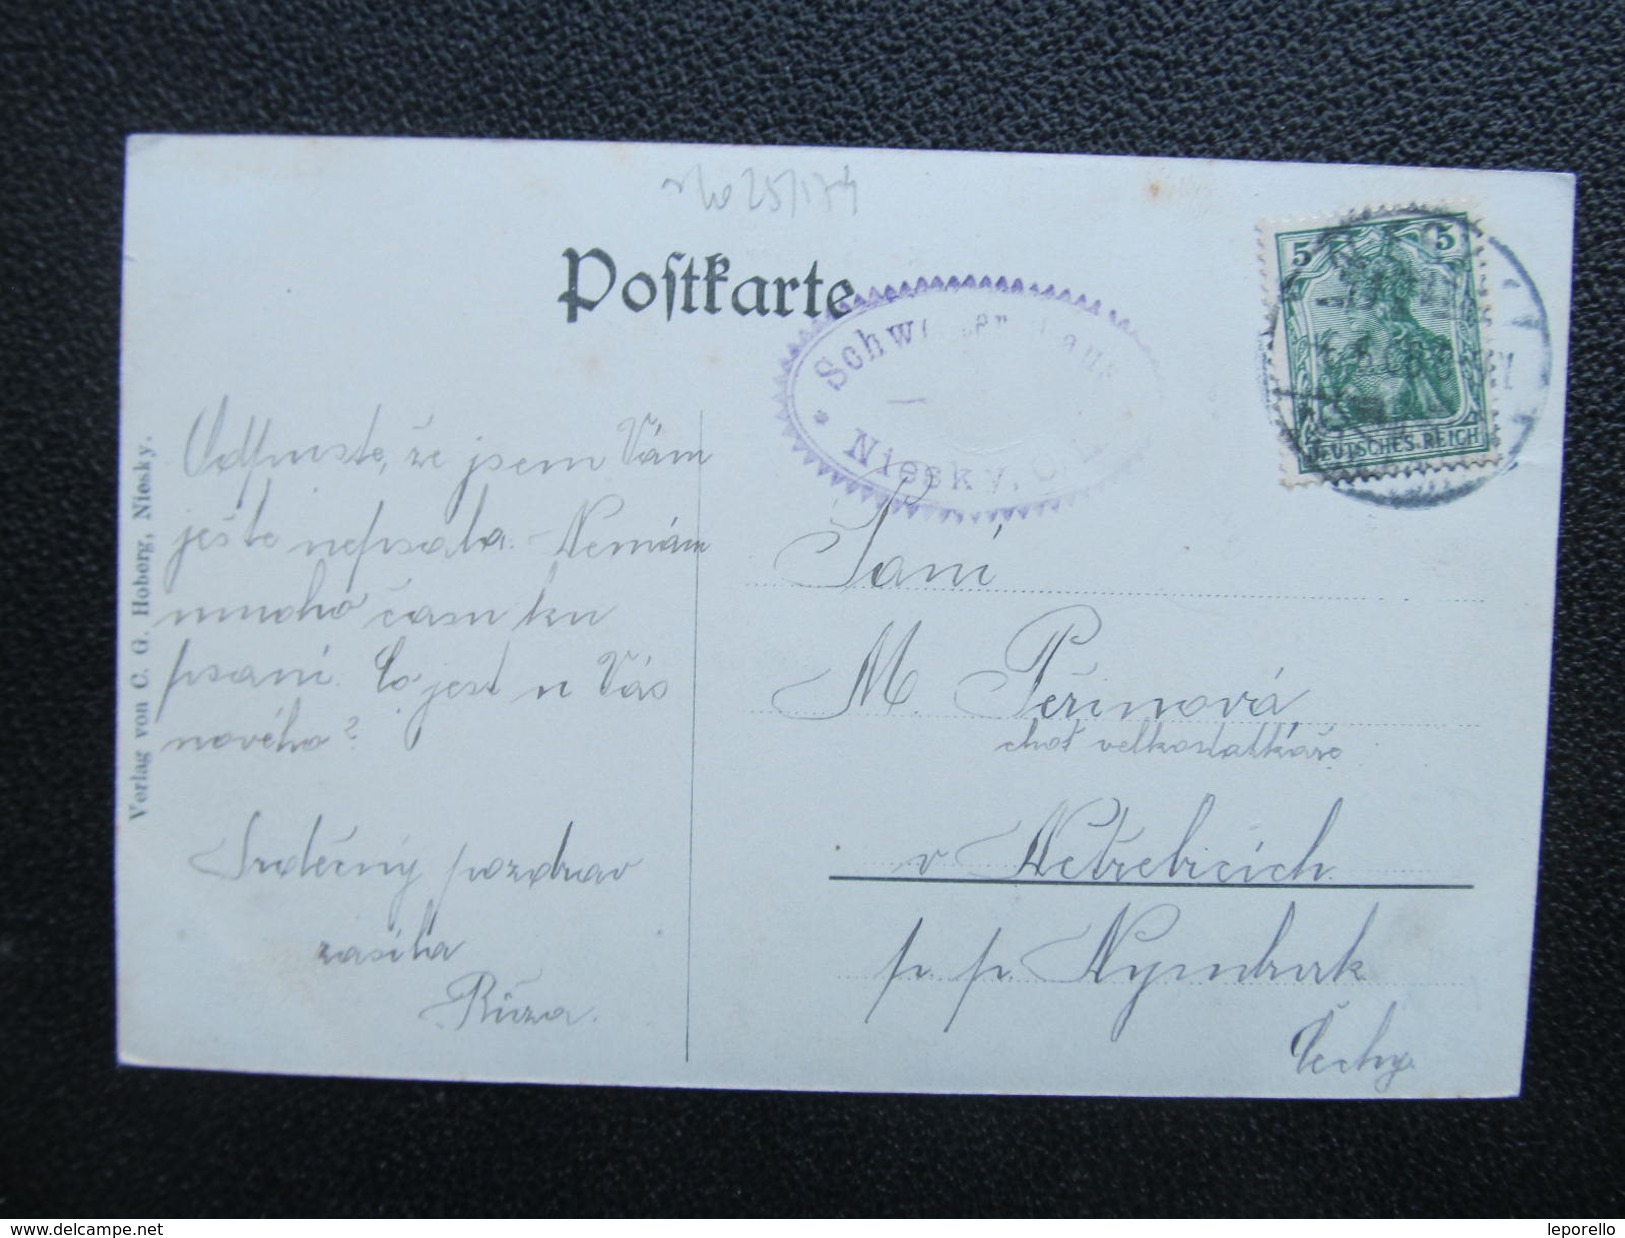 Postkarte
5 5
DEUTSCHES REICH
Niesky, O/L
Verlag von C. G. Hoberg, Niesky.
Odpuste, že jsem Vám
ještě nepsala. - Nemám
mnoho času ku
psaní. Co jest u Vás
nového?
Srdečný pozdrav
zasílá
Růza.
Paní
M. Peřinová,
choť velkostatkáře
v Netřebicích
p. p. Nymburk
Čechy.
www.delcampe.net
leporello